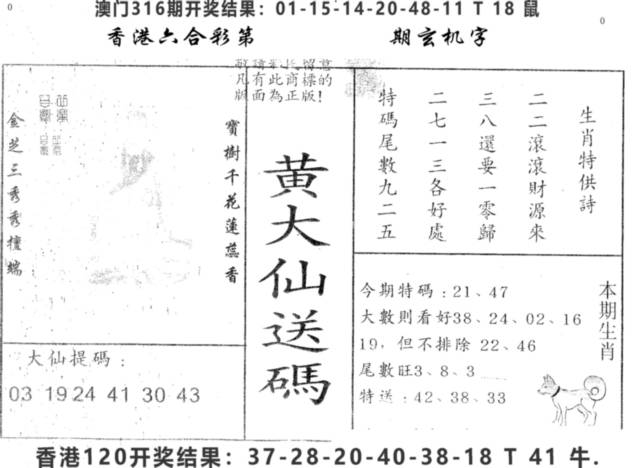 澳门316期开奖结果：01-15-14-20-48-11 T 18 鼠
香港六合彩第
期玄机字
凡有此商標的
版面為正版!
金芝三秀秀檀端
寶樹千花蓮蕊香
黄大仙送碼
生肖特供詩
二二滾滾財源來
三八還要一零歸
二七一三各好處
特碼尾數九二五
大仙提碼：
03 19 24 41 30 43
今期特碼：21、47
大數則看好38、24、02、16
19，但不排除 22、46
尾數旺3、8、3
特送：42、38、33
本期生肖
香港120开奖结果：37-28-20-40-38-18 T 41 牛.